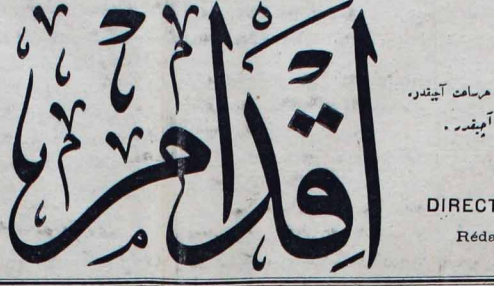 اقدام
هرساعت آچيقدر.
آچيقدر.
DIRECT
Réda